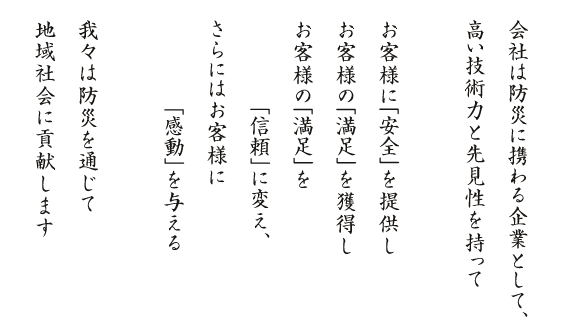 会社は防災に携わる企業として、
高い技術力と先見性を持って
お客様に「安全」を提供し
お客様の「満足」を獲得し
お客様の「満足」を
「信頼」に変え、
さらにはお客様に
「感動」を与える
我々は防災を通じて
地域社会に貢献します